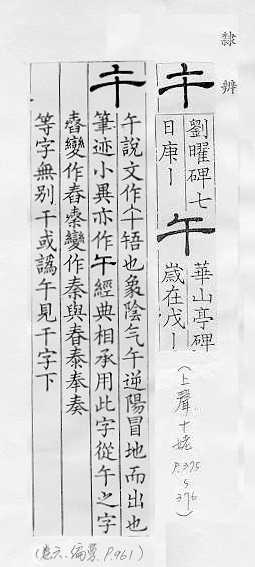 隸辨
午
劉曜碑七
日庚丨
午
華山亭碑
歲在戊丨
(上聲十姥 P.375 S 376)
午
午說文作午啎也象陰气午逆陽冒地而出也
筆迹小異亦作午經典相承用此字從午之字
舂變作舂秦變作秦與春泰奉奏
等字無別干或譌午見干字下
(卷六.偏旁.P.961)